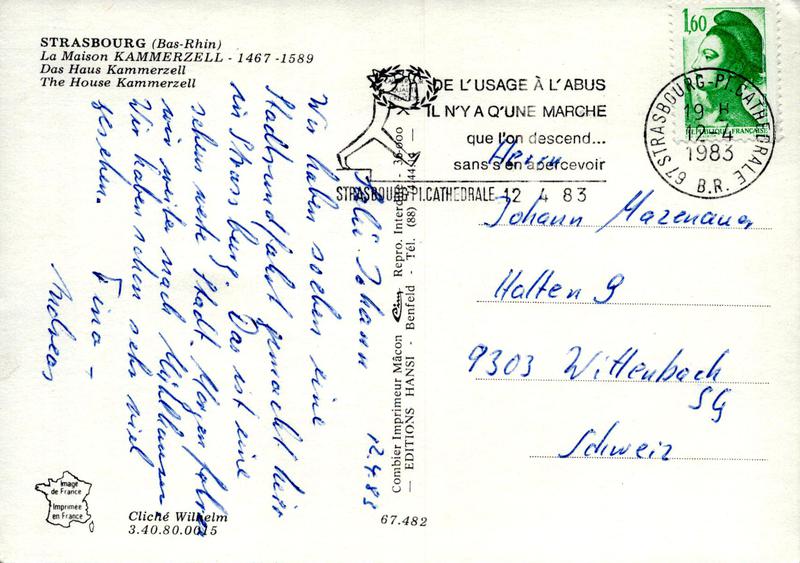 STRASBOURG (Bas-Rhin)
La Maison KAMMERZELL - 1467-1589
Das Haus Kammerzell
The House Kammerzell
12.4.83
Johann
Wir haben soeben eine
Stadtrundfahrt gemacht hier
in Strassburg. Das ist eine
schöne nette Stadt. Morgen fahren
wir weiter nach Mühlhausen.
Wir haben schon sehr viel
gesehen.
Tino -
Andreas
Image
de France
Imprimée
en France
Cliché Wilhelm
3.40.80.0015
67.482
Combier Imprimeur Mâcon Cim Repro. Interdite
— EDITIONS HANSI - Benfeld - Tél. (88)
DE L'USAGE À L'ABUS
IL N'Y A Q'UNE MARCHE
que l'on descend...
sans s'en apercevoir
STRASBOURG P1.CATHEDRALE 12 4 83
1,60
REPUBLIQUE FRANÇAISE
67 STRASBOURG-P1.CATHEDRALE
19 H
12-4
1983
B.R.
Herrn
Johann Mazenauer
Halten 9
9303 Wittenbach
SG
Schweiz